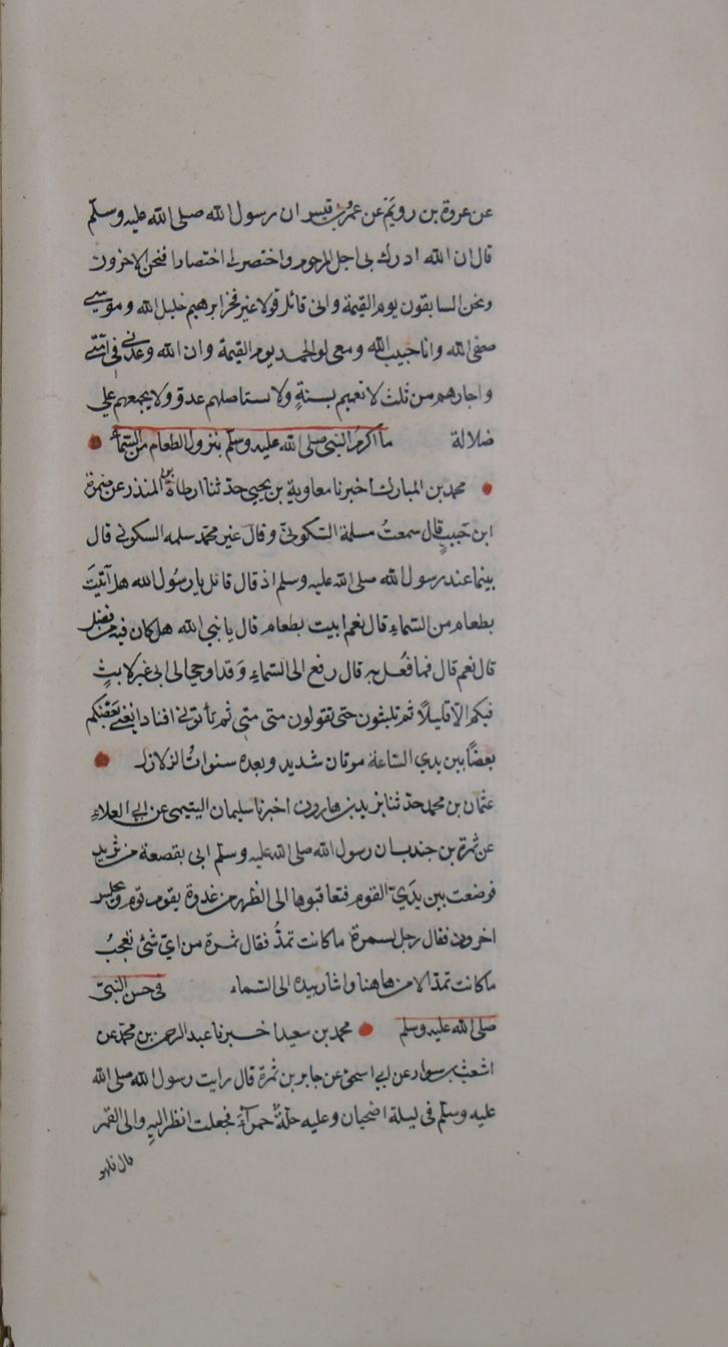 عن عروة بن رويم عن عمرو بن قيس ان رسول الله صلى الله عليه وسلم
قال ان الله ادرك بى اجل المرحوم واختصر لى اختصارا فنحن الاخرون
ونحن السابقون يوم القيمة وانى قائل قولا غير فخر ابرهيم خليل الله وموسى
صفى الله وانا حبيب الله ومعى لو الحمد يوم القيمة وان الله وعدنى فى امتى
واجارهم من ثلث لا تعميم بسنةٍ ولا ستاصلهم عدو ولا يجمعهم على
ضلالة ما اكرم النبى صلى الله عليه وسلم بنزول الطعام من السماء
محمد بن المبارك اخبرنا معاوية بن يحيى حدثنا ارطاة بن المنذر عن ضمرة
ابن حَبيبٍ قال سمعتُ مسلمة السكونىّ وقال غير محمد سلمه السكونى قال
بينما عند رسول الله صلى الله عليه وسلم اذ قال قائل يا رسُول الله هل اُتيتَ
بطعام من السماءِ قال نعم ابيت بطعام قال يا نبى الله هل كان فيه من فضل
قال نعم قال فما فُعل به قال رفع الى السماءِ وَقد اوحى الى انى غير لابثٍ
فيكم الّا قليلًا ثم تلبثون حتى تقولون متى متى ثم تأتونى افنادا يفنى بَعضكم
بعضًا بين يدي الساعة موتان شديد وبعده سنواتُ الزلازل
عثمان بن محمد حدثنا يزيد بن هارون اخبرنا سليمان التيمى عن ابى العلاءِ
عن ثمرة بن جندب ان رسول الله صلى الله عليه وسلم اتى بقصعة من ثريد
فوضعت بين يدَي القوم فتعاقبوها الى الظهر من غدوة يقوم قوم ويجلس
اخرون فقال رجل لسمرة ما كانت تمدُّ فقال ثمرة من اىّ شئ تعجبُ
ما كانت تمد الا من هاهنا واشار بيده الى السماء فى حسن النبىّ
صلى الله عليه وسلم محمد بن سعيد اخبرنا عبد الرحمن بن محمد عن
اشعث بن سوار عن ابى اسحق عن جابر بن ثمرة قال رايت رسول الله صلى الله
عليه وسلم فى ليلة اضحيان وعليه حلّةٌ حمرآءُ فجعلت انظر اليهِ والى القمر
قال فلهو